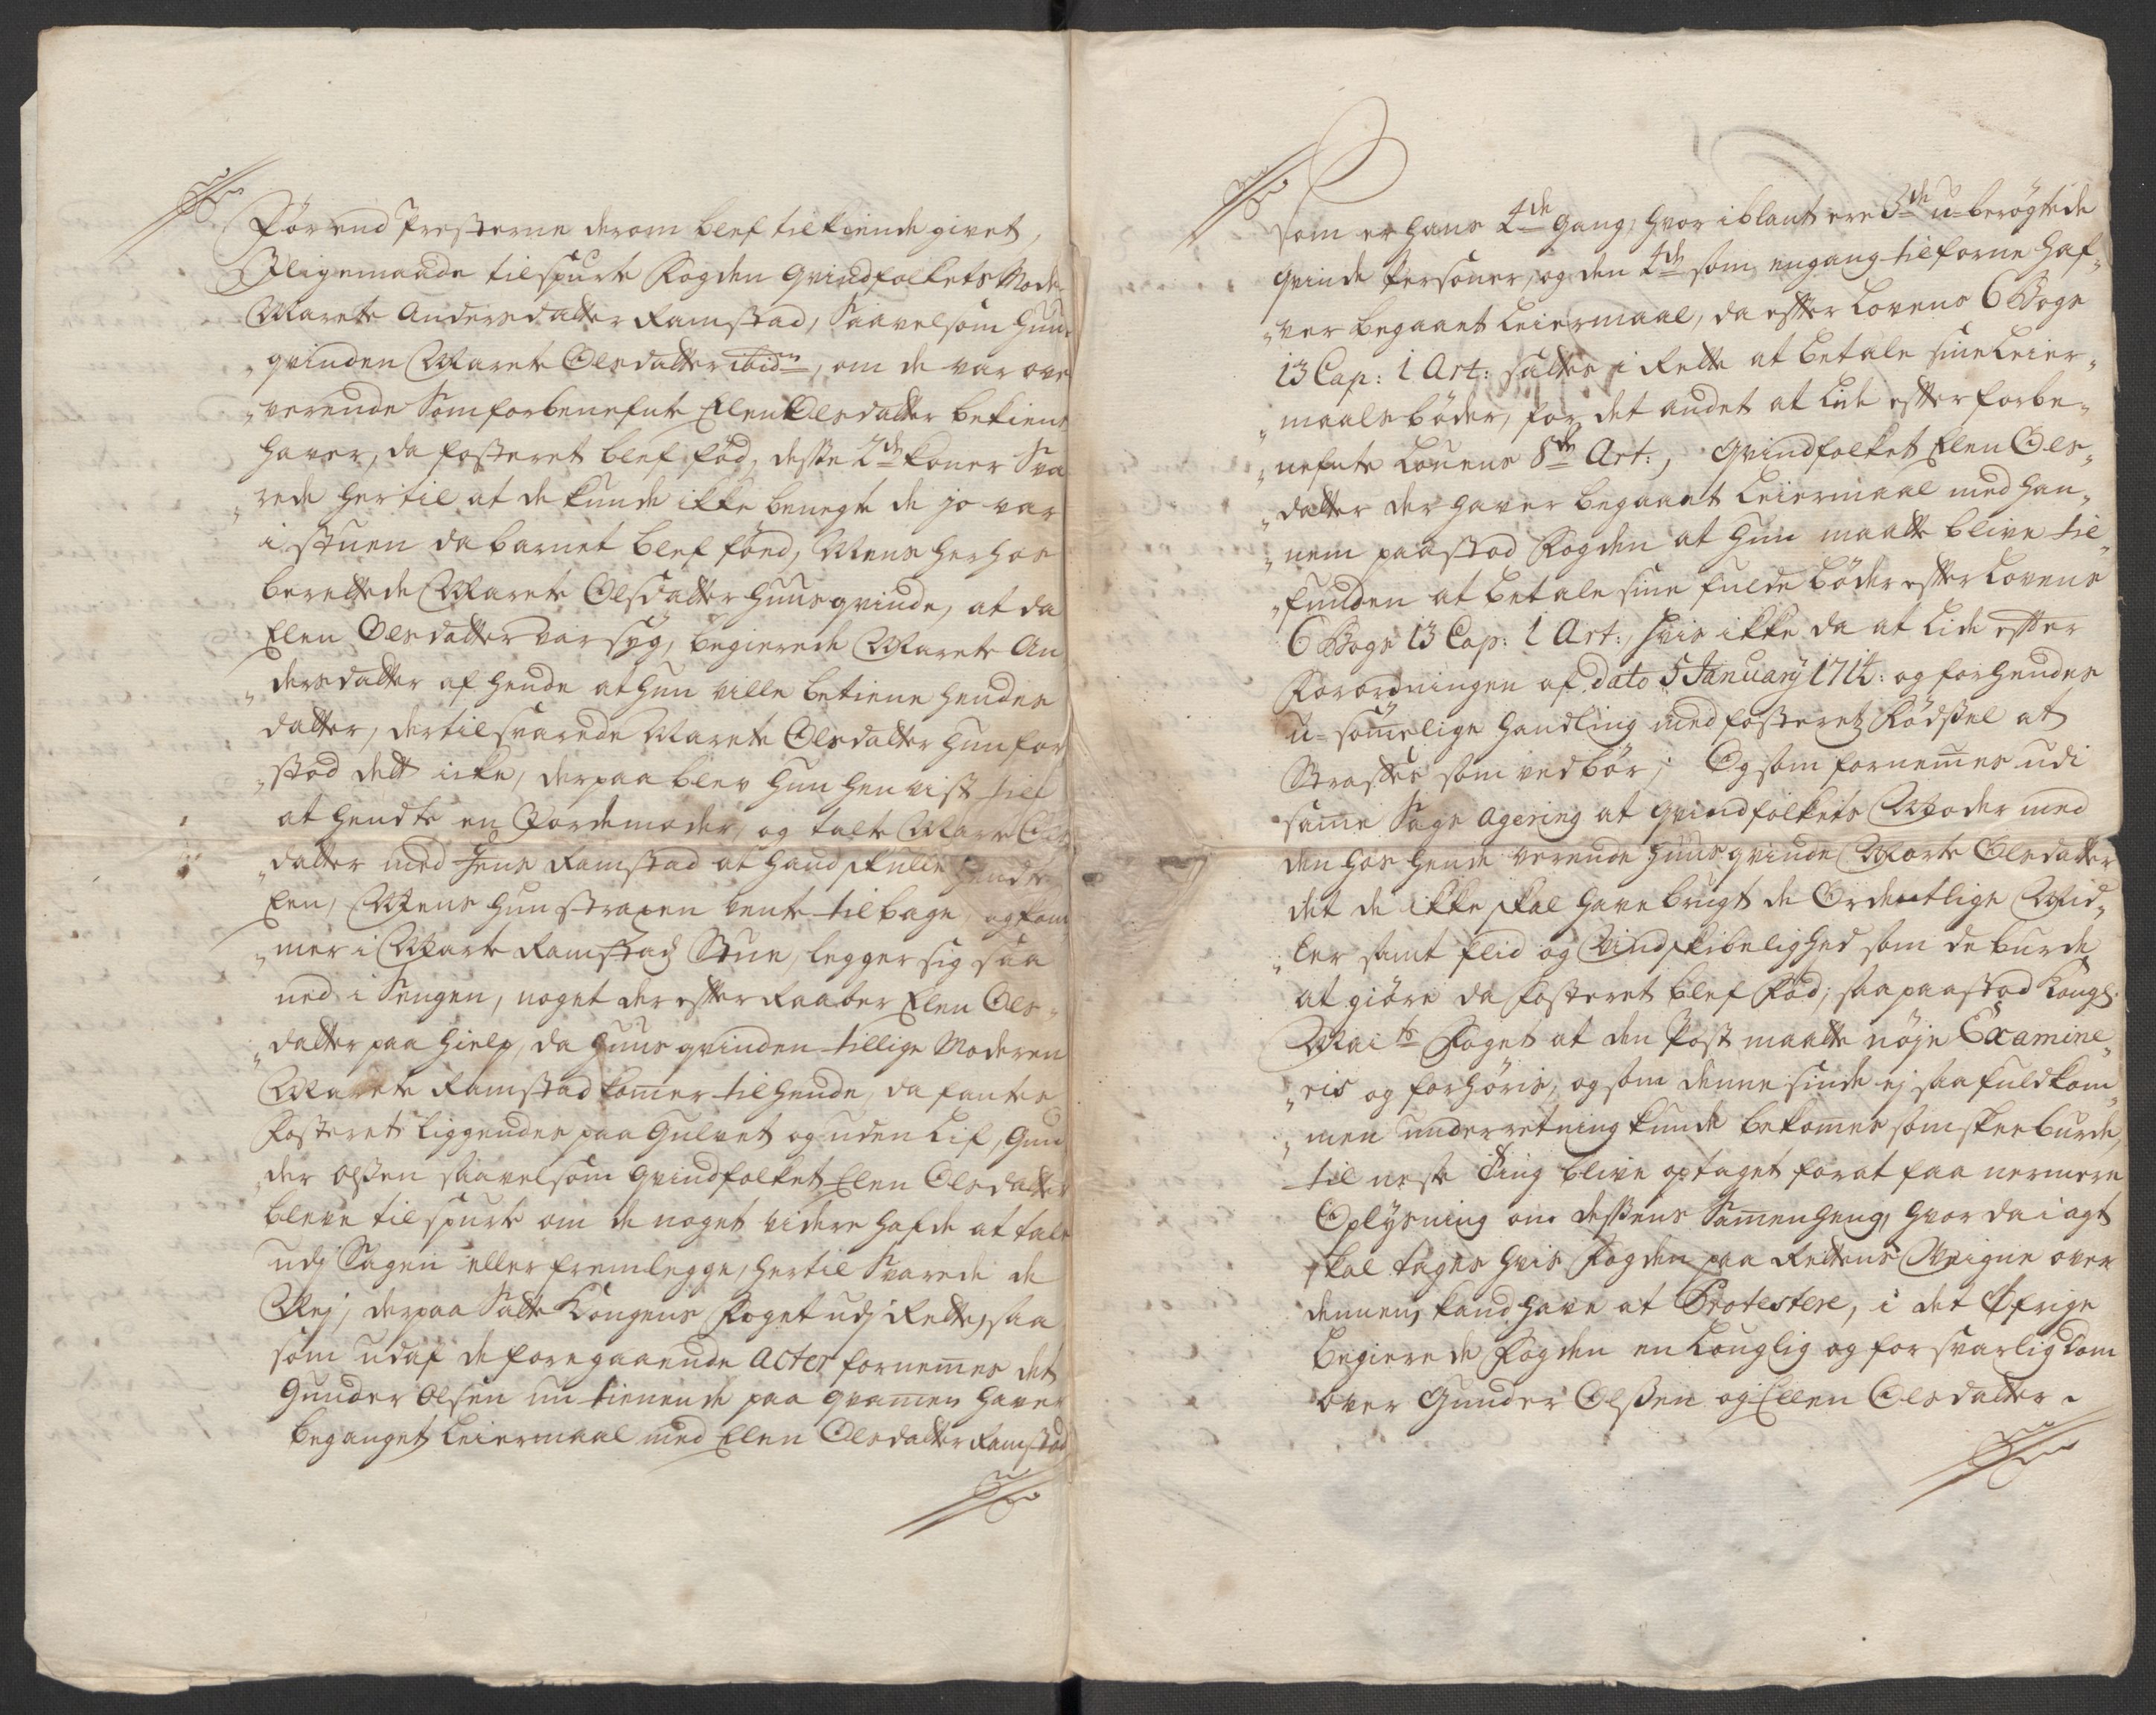 Før end Presterne derom blef tilkiende givet,
Iligemaade tilspurte Fogden Qvindfolkets Mode
Marete Andersdatter Ramstad, Saavelsom Huus
qvinden Marete Olsdatter ibidm, om de var over
verende Som forbenefnte Elen Olsdatter bekient
haver, da fosteret blef fød, desse 2de koner Sva
rede hertil at de kunde ikke benegte de jo var
i stuen da barnet blef fønd, Mens herhos
berettede Marete Olsdatter huusqvinde, at da
Elen Olsdatter var syg, begierede Marete An
dersdatter af hende at hun ville betiene hendes
datter, dertil svarede Marete Olsdatter hun for
stod dett icke, derpaa blev hun henvist til
at hendte en Jordemoder, og talte Marte Ols
datter med Jens Ramstad at hand skulle hendte
Een, Mens hun straxen vente tilbage, og kom
mer i Marte Ramstad Stue, legger sig saa
ned i Sengen, noget derefter Raaber Elen Ols
datter paa hielp, da huusqvinden tillige Moderen
Marete Ramstad komer til hende, da fantes
fosteret liggendes paa Gulvet og uden Lif, Gun
der Olsen saavelsom qvindfolket Elen Olsdatter
bleve tilspurte om de noget videre hafde at tale
udj Sagen eller fremlegge, hertil Svarede de
Nej; derpaa Satte Kongens foget udj Rette, saa
som udaf de foregaaende acter fornemes det
Gunder Olsen nu tienende paa qvamen haver
beganget Leiermaal med Elen Olsdatter Ramstad
Som er hans 4de gang, hvor iblant ere 3de u-berøgtede
qvinde Personer, og den 4de som engang tilforne haf
ver begaaet Leiermaal, da efter Lovens 6 Bogs
13 Cap: 1 Art: sattes i Rette at betale sine Leier
maals bøder, for det andet at Lide efter forbe
nefnte Lovens 8de Art:, Qvindfolket Elen Ols
datter der haver begaaet Leiermaal med han
nem paastod Fogden at hun maatte blive til
funden at betale sine fulde bøder efter Lovens
6 Bogs 13 Cap: 1 Art:, hvis ikke da at Lide efter
Forordningen af dato 5 January 1714: og for hendes
u-sømelige handling med fosteretz fødsel at
Straffes som ved bør; Og som fornemes udi
same Sags agering at qvindfolkets Moder med
den hos hende verende huusqvinde Marte Olsdatter
det de ikke skal have brugt de Ordentlige Mid
ler samt flid og Vindskibelighed som de burde
at giøre da fosteret blef fød; saa paastod Kongl:
Maits Foget at den Post maatte nøje Examine
ris og forhøris, og som denne sinde ej saa fuldkom
men underretning kunde bekomes som skee burde,
til neste Ting blive optaget for at faa nermere
Oplysning om dessens Samenheng, hvor da i agt
skal tages hvis Fogden paa Rettens Veigne over
dennem kand have at Protestere, i det Øfrige
begierede Fogden en Louglig og forsvarlig Dom
over Gunder Olssen og Ellen Olsdatter